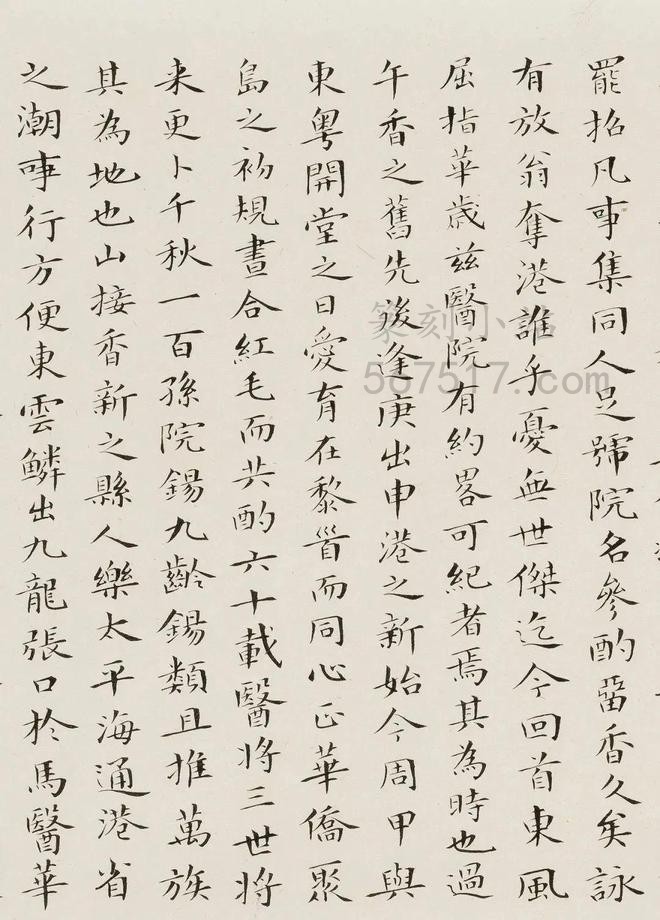 罷招凡事集同人足號院名參酌畱香久矣詠
有放翁奪港誰乎憂無世傑迄今回首東風
屈指華歲茲醫院有約畧可紀者焉其為時也過
午香之舊先後逢庚出申港之新始今周甲與
東粵開堂之日愛育在黎首而同心正華僑聚
島之初規畫合紅毛而共酌六十載醫將三世將
来更卜千秋一百孫院錫九齡錫類且推萬族
其為地也山接香新之縣人樂太平海通港省
之潮事行方便東雲鱗出九龍張口於馬醫華
篆刻小
567517.com